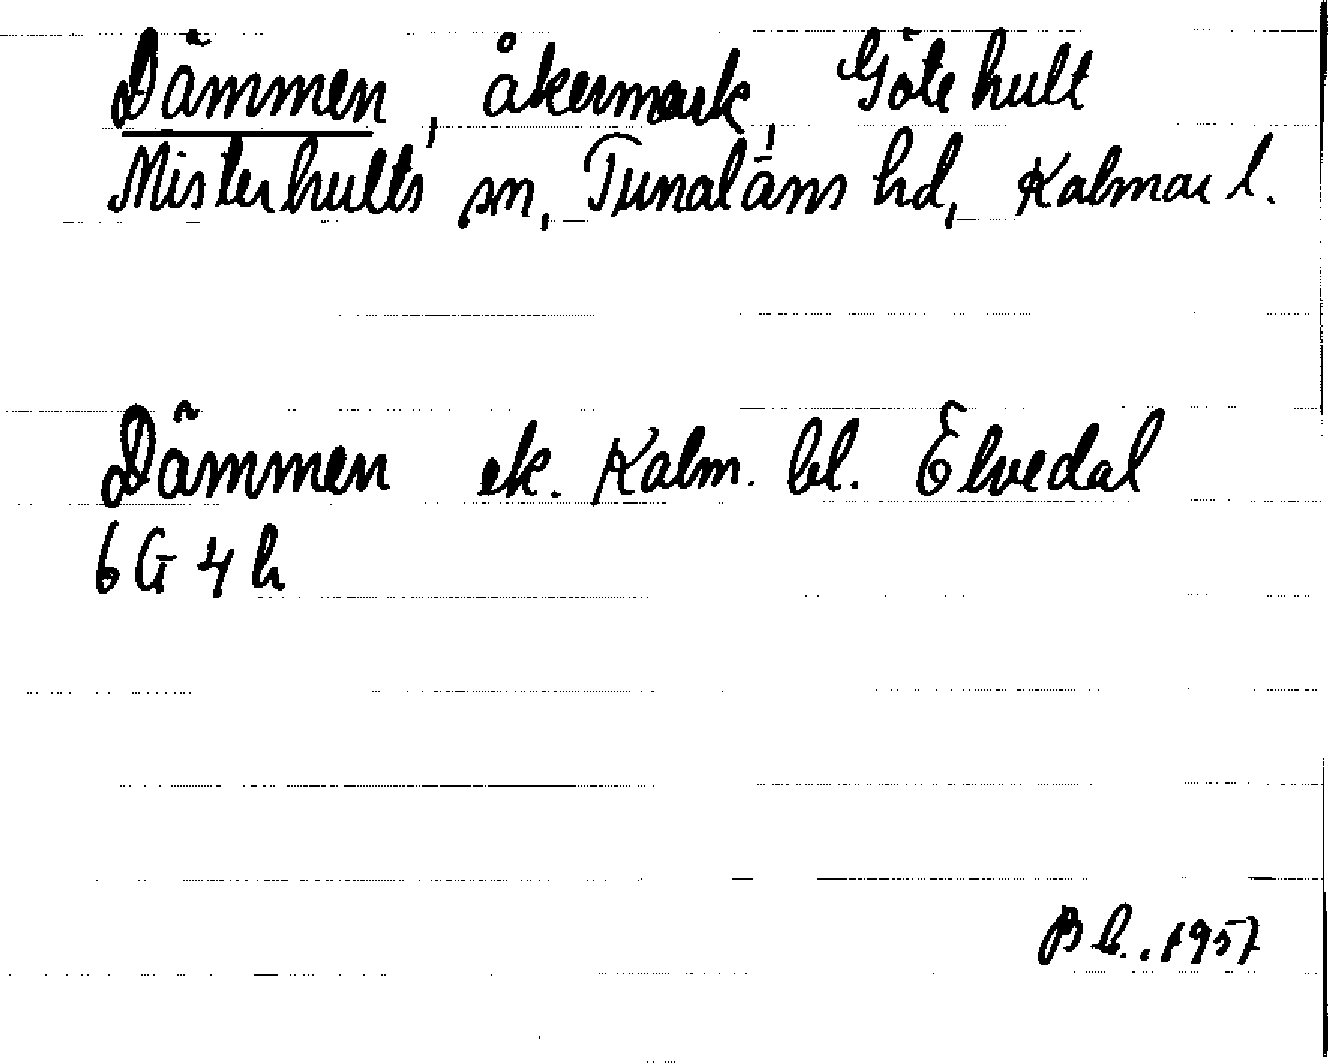 Dämmen, åkermark, Götehult
Misterhults sn, Tunaläns hd, Kalmar l.
Dämmen ek. Kalm. bl. Elvedal
6 G 4 h
1957